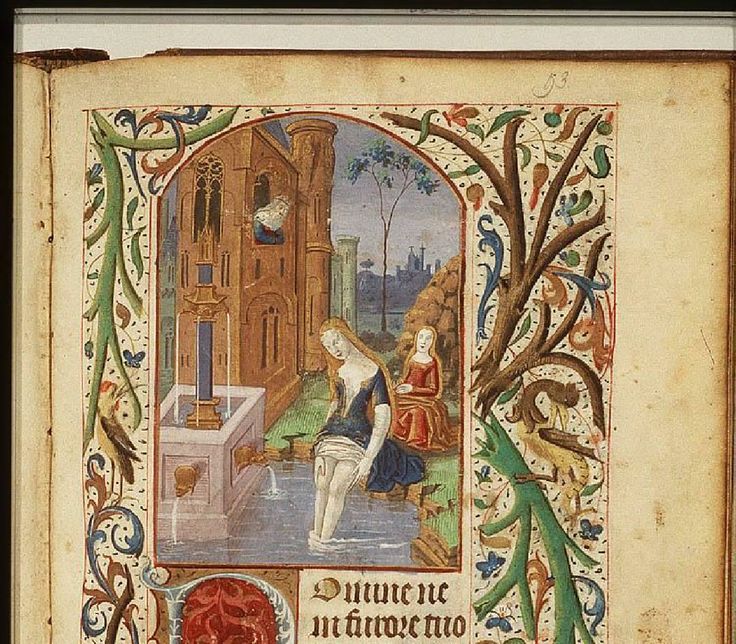 53
Domine ne
in furore tuo